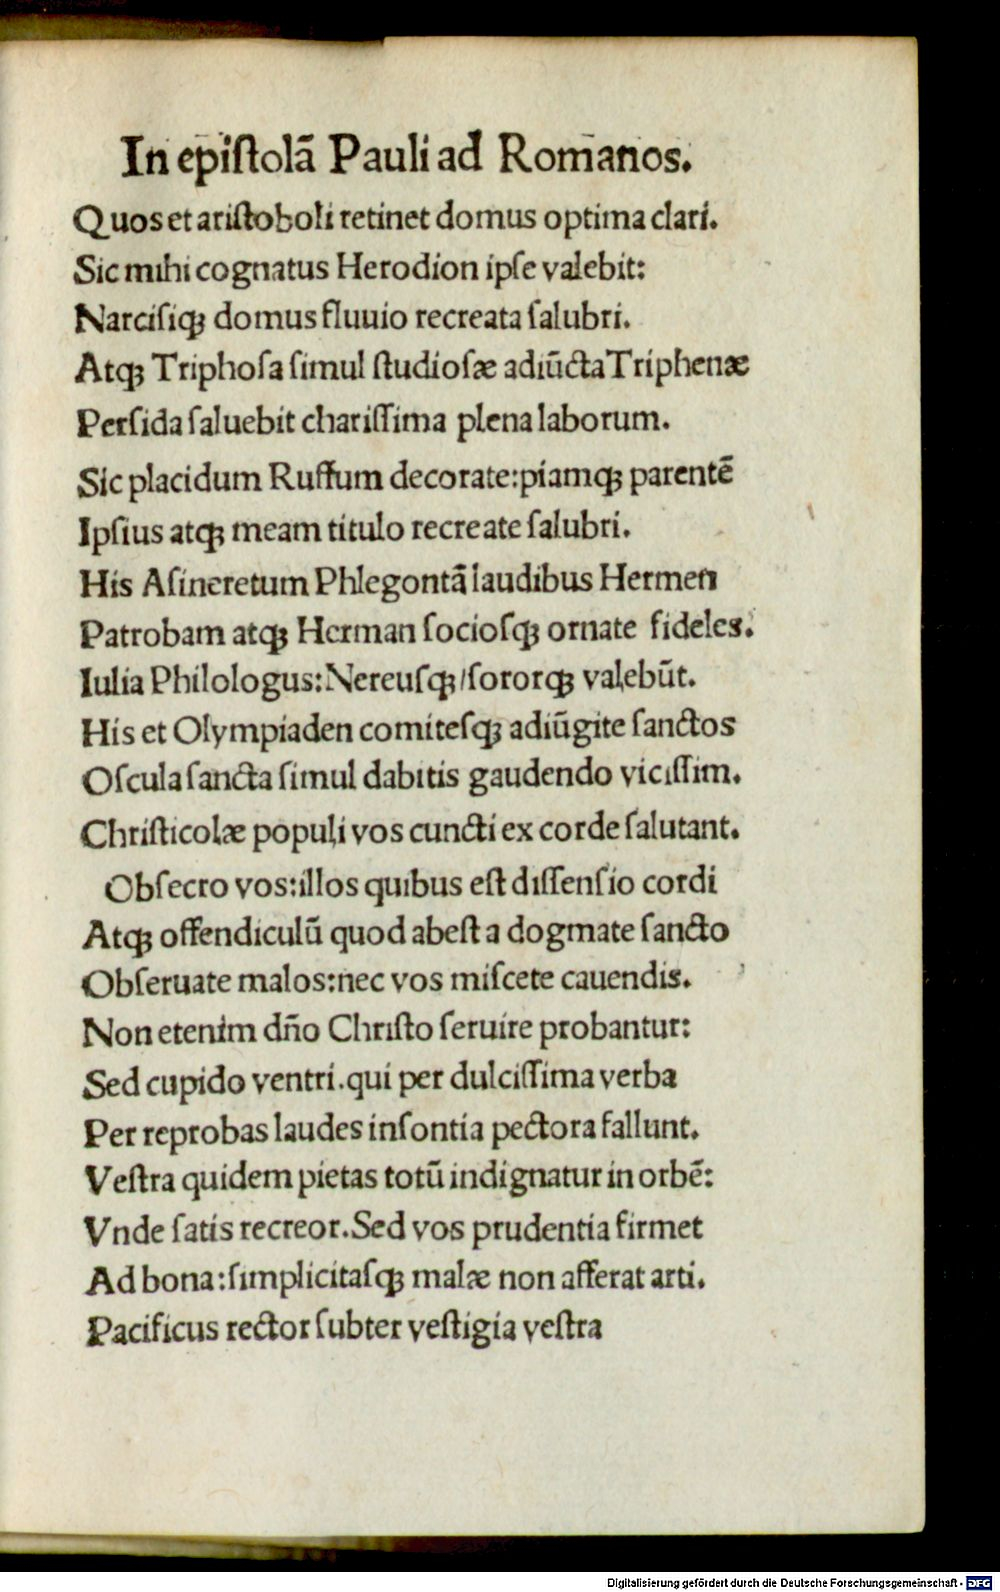 In epiſtolã Pauli ad Romanos.
Quos et ariſtoboli retinet domus optima clari.
Sic mihi cognatus Herodion ipſe valebit:
Narciſiqꝫ domus fluuio recreata ſalubri.
Atqꝫ Triphoſa ſimul ſtudioſæ adiũcta Triphenæ
Perſida ſaluebit chariſſima plena laborum.
Sic placidum Ruffum decorate: piamqꝫ parentẽ
Ipſius atqꝫ meam titulo recreate ſalubri.
His Aſincretum Phlegontã laudibus Hermen
Patrobam atqꝫ Herman ſocioſqꝫ ornate fideles.
Iulia Philologus: Nereuſqꝫ/ſororqꝫ valebũt.
His et Olympiaden comiteſqꝫ adiũgite ſanctos
Oſcula ſancta ſimul dabitis gaudendo viciſſim.
Chriſticolæ populi vos cuncti ex corde ſalutant.
Obſecro vos: illos quibus eſt diſſenſio cordi
Atqꝫ offendiculũ quod abeſt a dogmate ſancto
Obſeruate malos: nec vos miſcete cauendis.
Non etenim dño Chriſto ſeruire probantur:
Sed cupido ventri. qui per dulciſſima verba
Per reprobas laudes inſontia pectora fallunt.
Veſtra quidem pietas totũ indignatur in orbẽ:
Vnde ſatis recreor. Sed vos prudentia firmet
Ad bona: ſimplicitaſqꝫ malæ non afferat arti.
Pacificus rector ſubter veſtigia veſtra
Digitalisierung gefördert durch die Deutsche Forschungsgemeinschaft - DFG